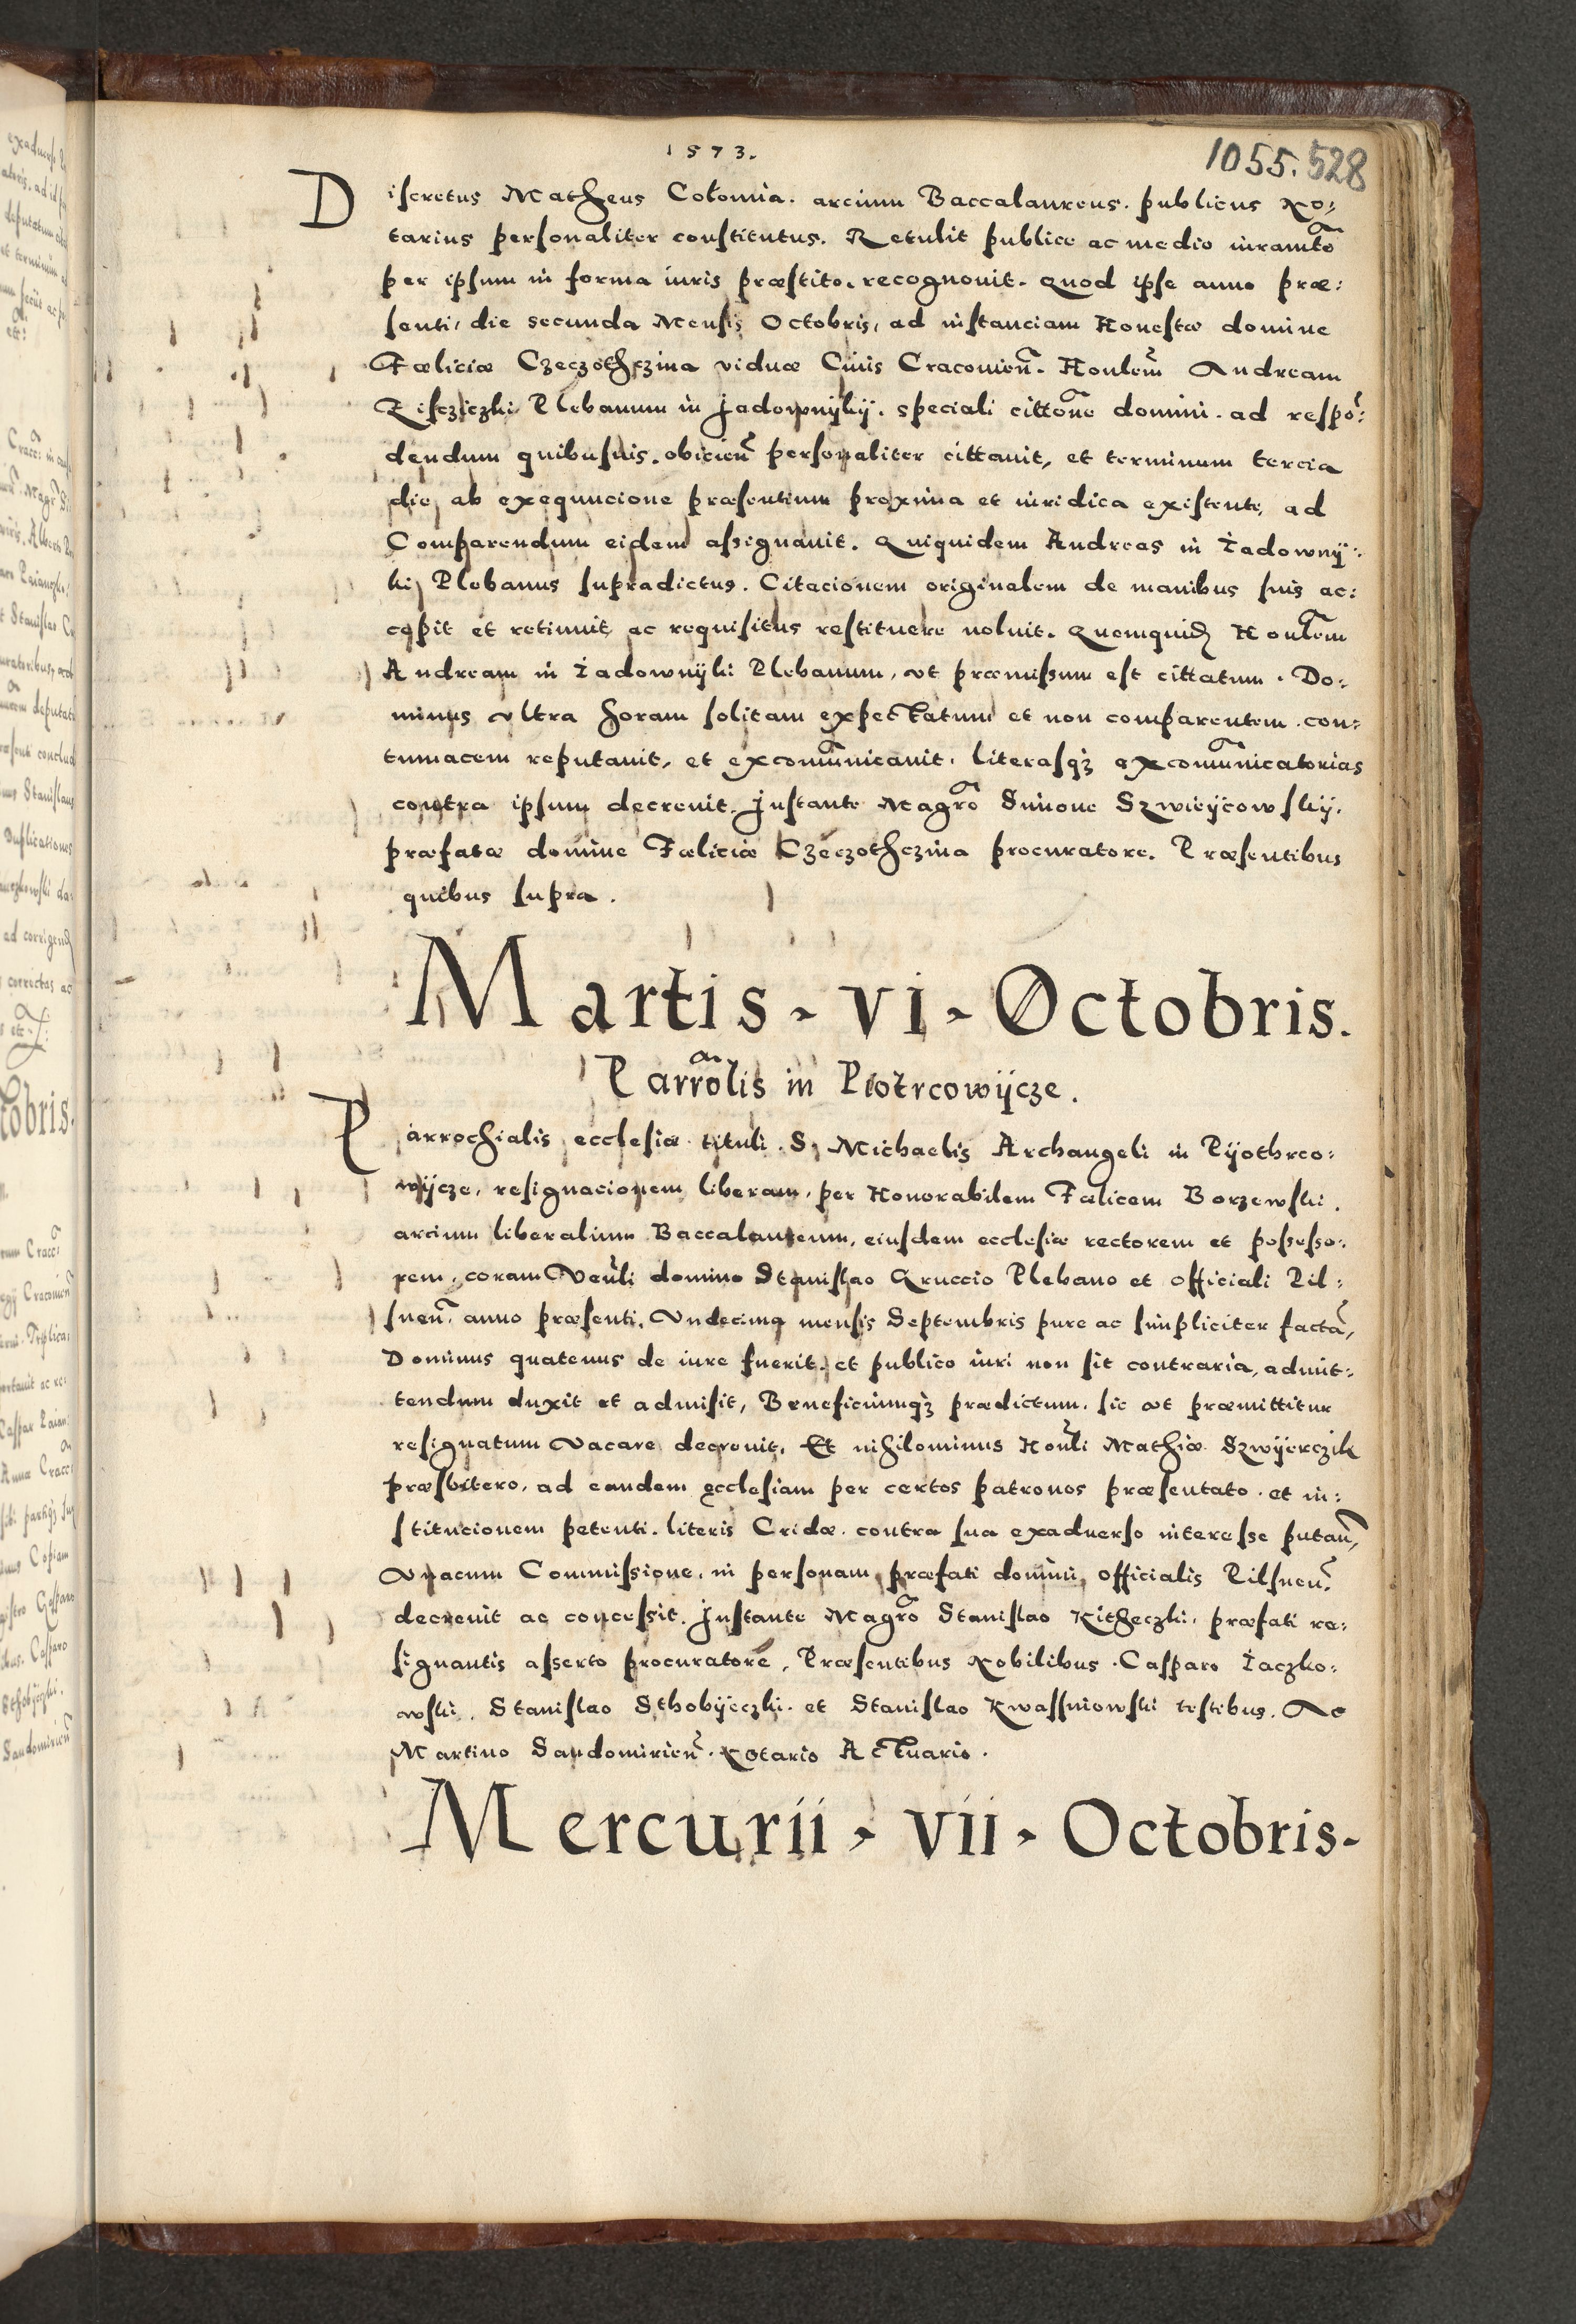 1573.
1055. 528
Discretus Matheus Colomia. arcium Baccalaureus. publicus No,
tarius personaliter constitutus. Retulit publice ac medio iuramto
per ipsum in forma iuris præstito. recognouit. quod ipse anno præ:
senti, die secunda Mensis Octobris, ad instanciam Honestæ domine
Fæliciæ Czeczothczina viduæ Ciuis Cracouien. Honlem Andream
plebanum in Jadownyky. speciali cittone domini. ad respo:
dendum quibusuis. obicien personaliter cittauit, et terminum tercia
die, ab exequucione præsentium proxima et iuridica existente, ad
Comparendum eidem assignauit. Quiquidem Andreas in Iadowny:
ki, Plebanus supradictus. Citacionem originalem de manibus suis ac:
cepit et retinuit, ac requisitus restituere noluit. Quemquid Honlem
Andream in Iadownyki Plebanum, vt præmissum est cittatum. Do:
minus vltra horam solitam expectatum et non comparentem. con:
tumacem reputauit, et excomunicauit. literasq excomunicatorias
contra ipsum decreuit. Instante Magro Simone Szwieycowsky.
præfatæ domine Fæliciæ Czeczothczina procuratore. Præsentibus
quibus supra.
Martis - vi - Octobris.
Parrolis in Piotrcowijcze.
Parrochialis ecclesiæ tituli. S. Michaelis Archangeli in Pyothrco:
wijcze, resignacionem liberam, per Honorabilem Fælicem Borzewski.
arcium liberalium Baccalaureum, eiusdem ecclesiæ rectorem et possesso:
rem, coram Venli domino Stanislao Gruccio Plebano et Officiali Pil:
snen. anno præsenti. Vndecima mensis Septembris pure ac simpliciter facta,
Dominus quatenus de iure fuerit. et publico iuri non sit contraria, admit:
tendum duxit et admisit, Beneficiumq prædictum. sic vt præmittitur
resignatum vacare decreuit. Et nihilominus Honli Mathiæ Szwyerczik
præsbitero, ad eandem ecclesiam per certos patronos præsentato. et in:
stitucionem petenti. literis Cridæ. contra sua exaduerso interesse putan,
Vnacum Commissione. in personam præfati domini, Officialis Pilsnen.
decreuit ac concessit. Instante Magro Stanislao Kitheczki, præfati re:
signantis asserto procuratore, Præsentibus Nobilibus. Casparo Iaczko:
wski, Stanislao Sthobyeczki. et Stanislao Kwassniowski testibus. Ac
Martino Sandomirien. Notario Actuario.
Mercurii - vii - Octobris-